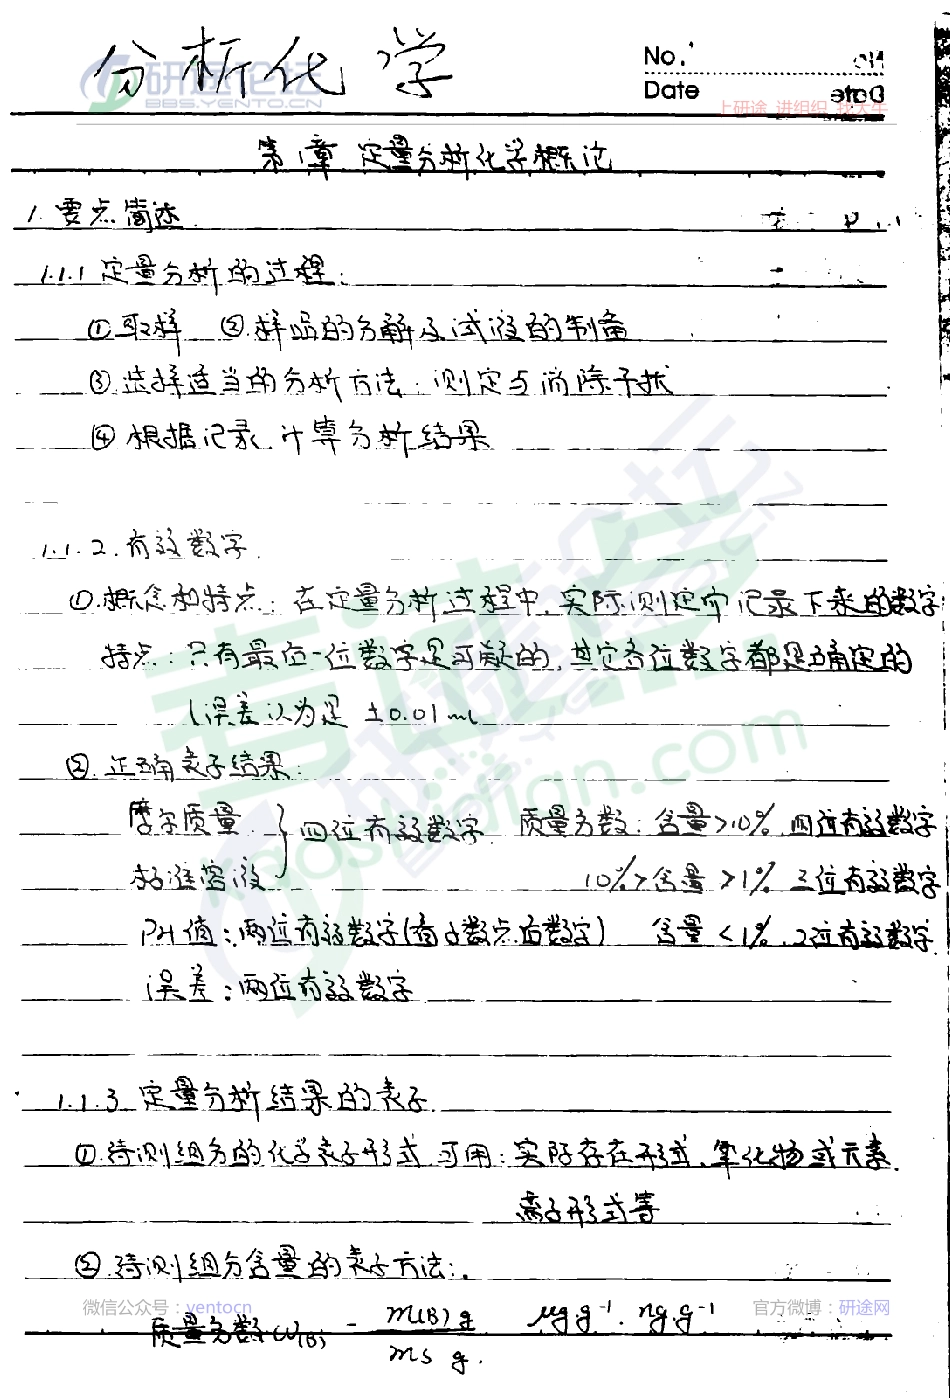 分析化学
研途论坛
BBS.YENTO.CN
No.
Date
上研途 进组织 找大牛
第1章 定量分析化学概论
1. 要点简述
1.1.1 定量分析的过程:
①取样 ②样品的分解及试液的制备
③选择适当的分析方法:测定与消除干扰
④根据记录计算分析结果
1.1.2.有效数字
①.概念和特点:在定量分析过程中,实际测定中记录下来的数字
特点:只有最后一位数字是可疑的,其它各位数字都是确定的
(误差认为是 ±0.01mL
②.正确表示结果:
摩尔质量 } 四位有效数字 质量分数:含量>10% 四位有效数字
标准溶液 10%>含量>1% 三位有效数字
PH值:两位有效数字(看小数点后数字) 含量<1%,2位有效数字
误差:两位有效数字
1.1.3 定量分析结果的表示
①待测组分的化学表示形式可用:实际存在形式、氧化物或元素
离子形式等
②.待测组分含量的表示方法:
质量分数 W(B) = m(B) g / ms g. μg·g⁻¹. ng·g⁻¹
考试点
kaoshidian.com
微信公众号:yentocn
官方微博:研途网